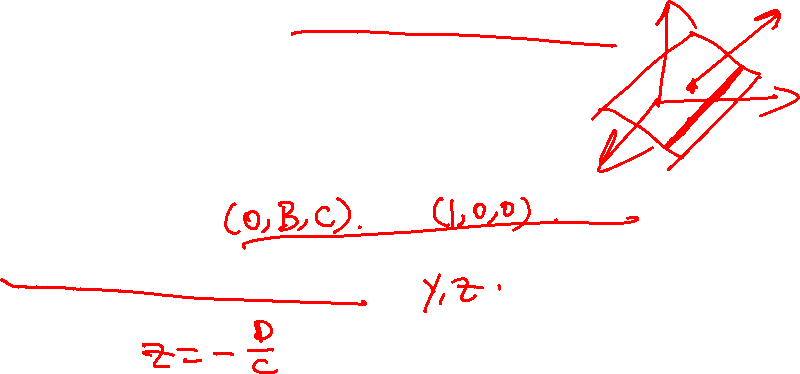 (0,B,C). (1,0,0).
y,z.
z=-D/C